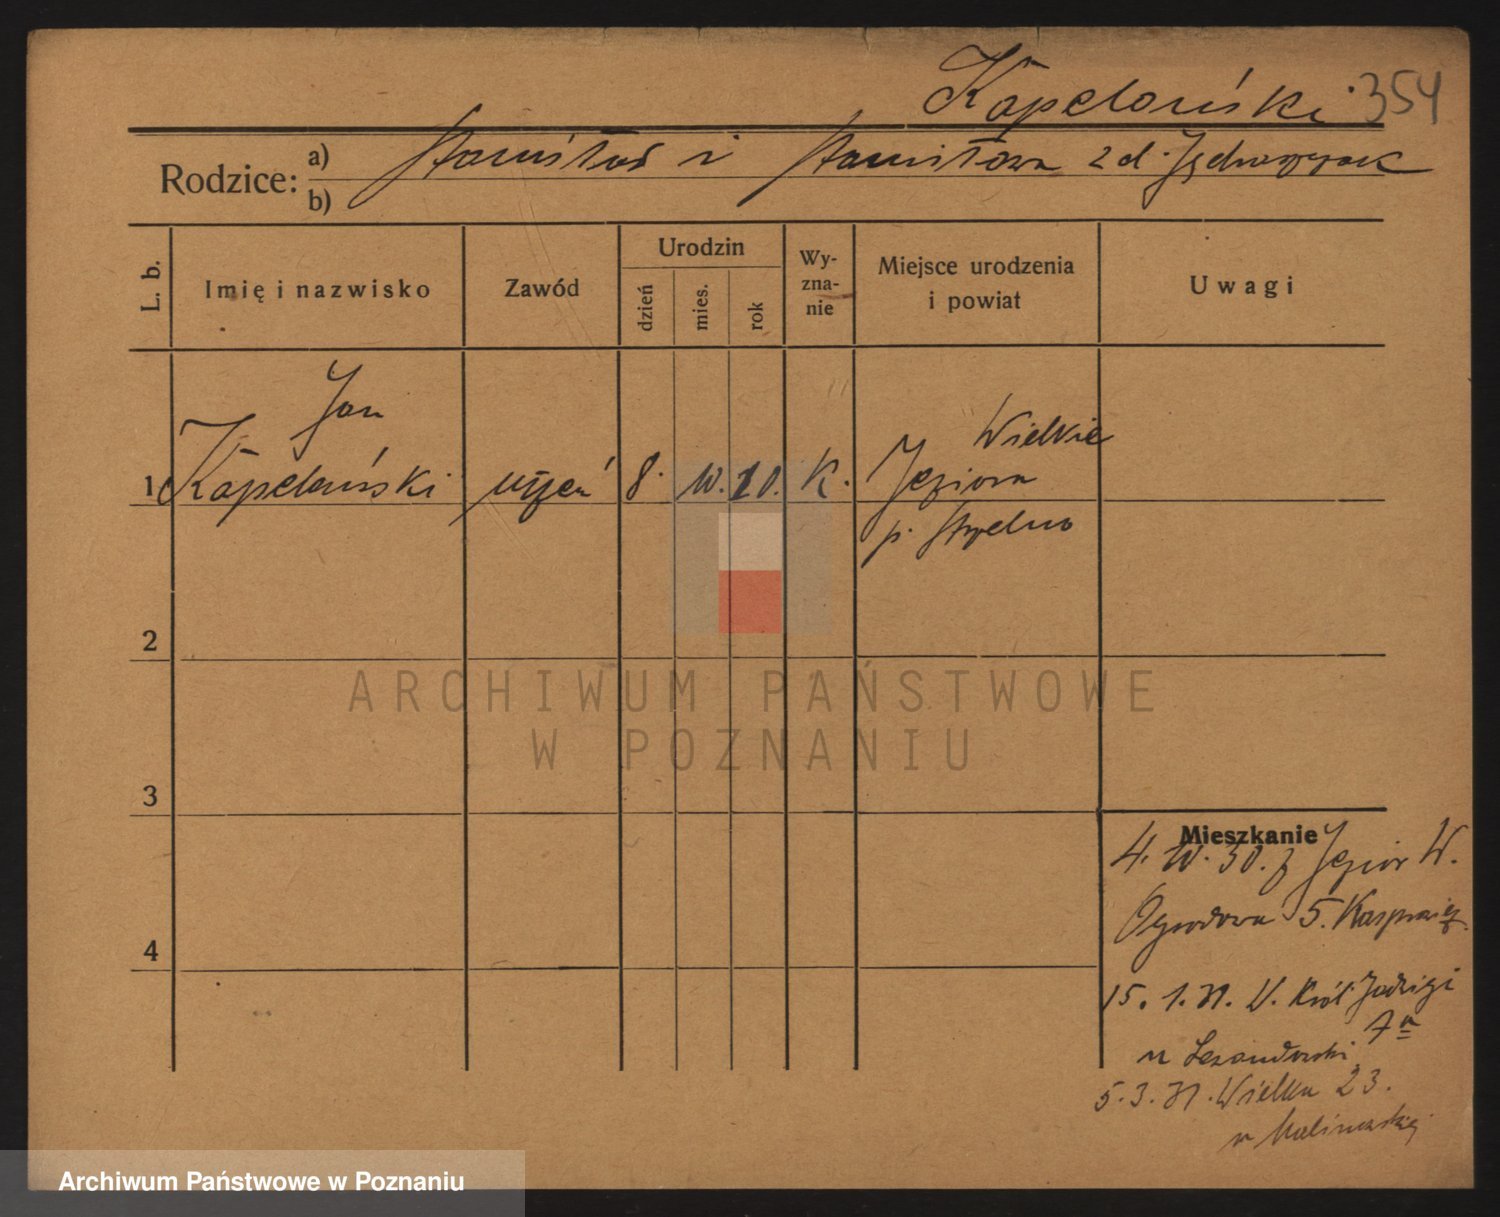 Kapelański 354
Rodzice: a) Stanisław i Stanisława z d. Jędraszczak
b)
L. b.
Imię i nazwisko
Zawód
Urodzin
dzień
mies.
rok
Wy-
zna-
nie
Miejsce urodzenia
i powiat
Uwagi
Jan
1 Kapelański uczeń 8. 10. 10. K.
Wielkie
Jeziora
p. Strzelno
2
3
4
ARCHIWUM PAŃSTWOWE
W POZNANIU
Mieszkanie
4. 10. 30. z Jezior W.
Ogrodowa 5.
15. 1. 31. Król. Jadwigi
7a
u
5. 3. 31. Wielka 23.
u Malinowskiej
Archiwum Państwowe w Poznaniu